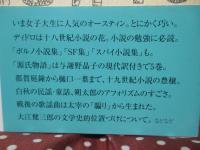 いま女子大生に人気のオースティン。とにかく巧い。
ディドロは十八世紀小説の花。小説の勉強に必読。
「ポルノ小説集」「SF集」「スパイ小説集」も。
『源氏物語』は与謝野晶子の現代訳付きで5巻。
都賀庭鐘から樋口一葉まで、十九世紀小説の豊穣。
白秋の民謡・童謡、朔太郎のアフォリズムのすごさ。
戦後の歌謡曲は太宰の「駆り」から生まれた。
大江健三郎の文学史的位置づけについて。などなど